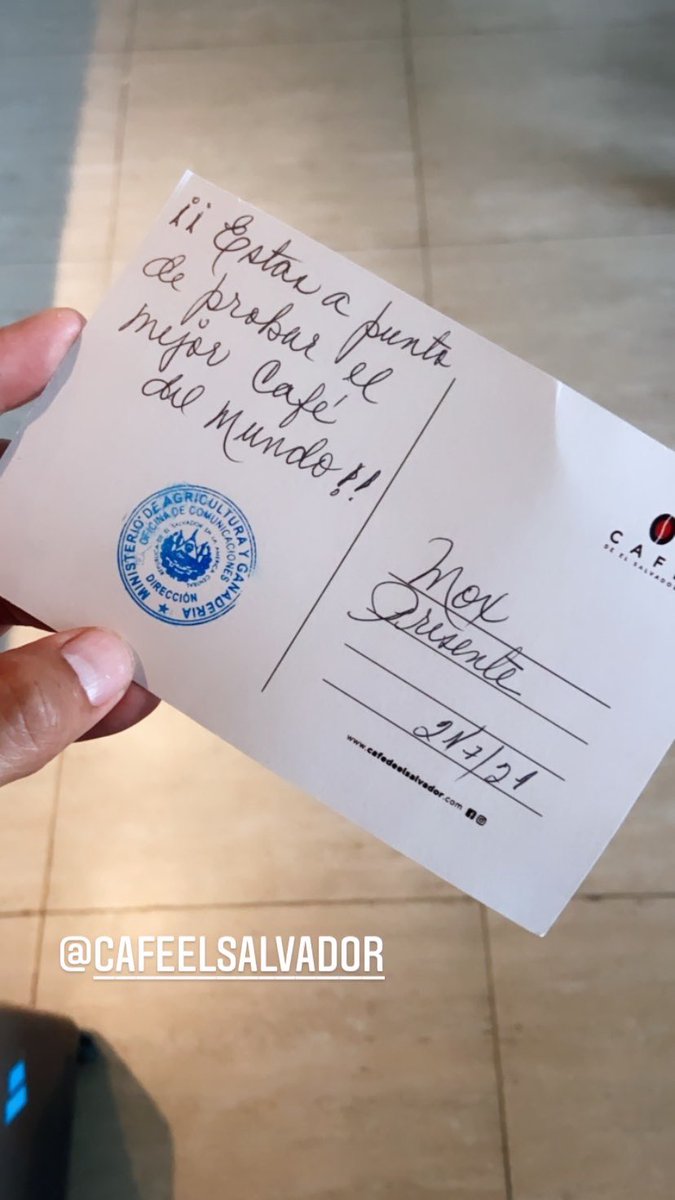 ¡¡ Estas a punto
de probar el
mejor Café
del Mundo!!
MINISTERIO DE AGRICULTURA Y GANADERIA
OFICINA DE COMUNICACIONES
REPUBLICA DE EL SALVADOR EN LA AMERICA CENTRAL
DIRECCIÓN
CAF
DE EL SALVADOR
Mox
Presente
21/7/21
www.cafedeelsalvador.com
@CAFEELSALVADOR